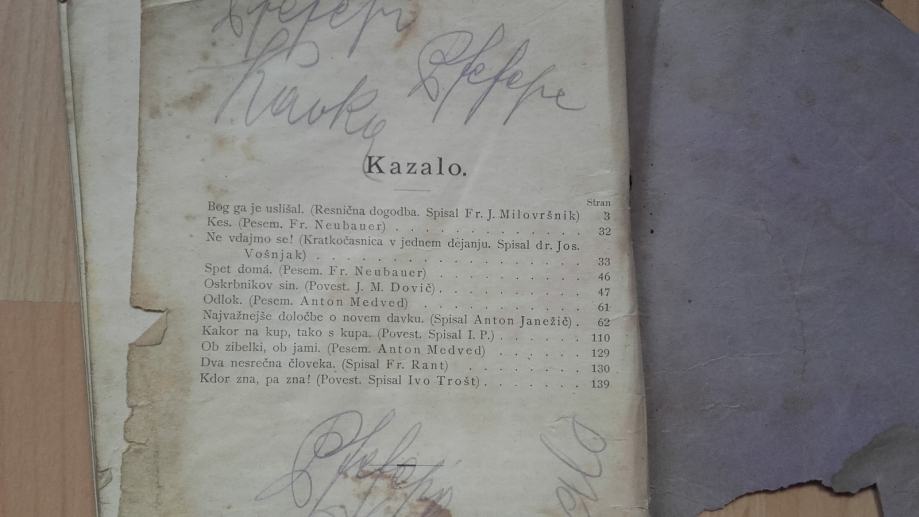 Kazalo.
Stran
Bog ga je uslišal. (Resnična dogodba. Spisal Fr. J. Milovršnik) 3
Kes. (Pesem. Fr. Neubauer) . . . . . . . . . . . . . 32
Ne vdajmo se! (Kratkočasnica v jednem dejanju. Spisal dr. Jos.
Vošnjak) . . . . . . . . . . . . . . . . . 33
Spet domá. (Pesem. Fr. Neubauer) . . . . . . . . . . 46
Oskrbnikov sin. (Povest. J. M. Dovič) . . . . . . . . . . 47
Odlok. (Pesem. Anton Medved) . . . . . . . . . . . . 61
Najvažnejše določbe o novem davku. (Spisal Anton Janežič) . 62
Kakor na kup, tako s kupa. (Povest. Spisal I. P.) . . . . . . 110
Ob zibelki, ob jami. (Pesem. Anton Medved) . . . . . . 129
Dva nesrečna človeka. (Spisal Fr. Rant) . . . . . . . . 130
Kdor zna, pa zna! (Povest. Spisal Ivo Trošt) . . . . . . . 139